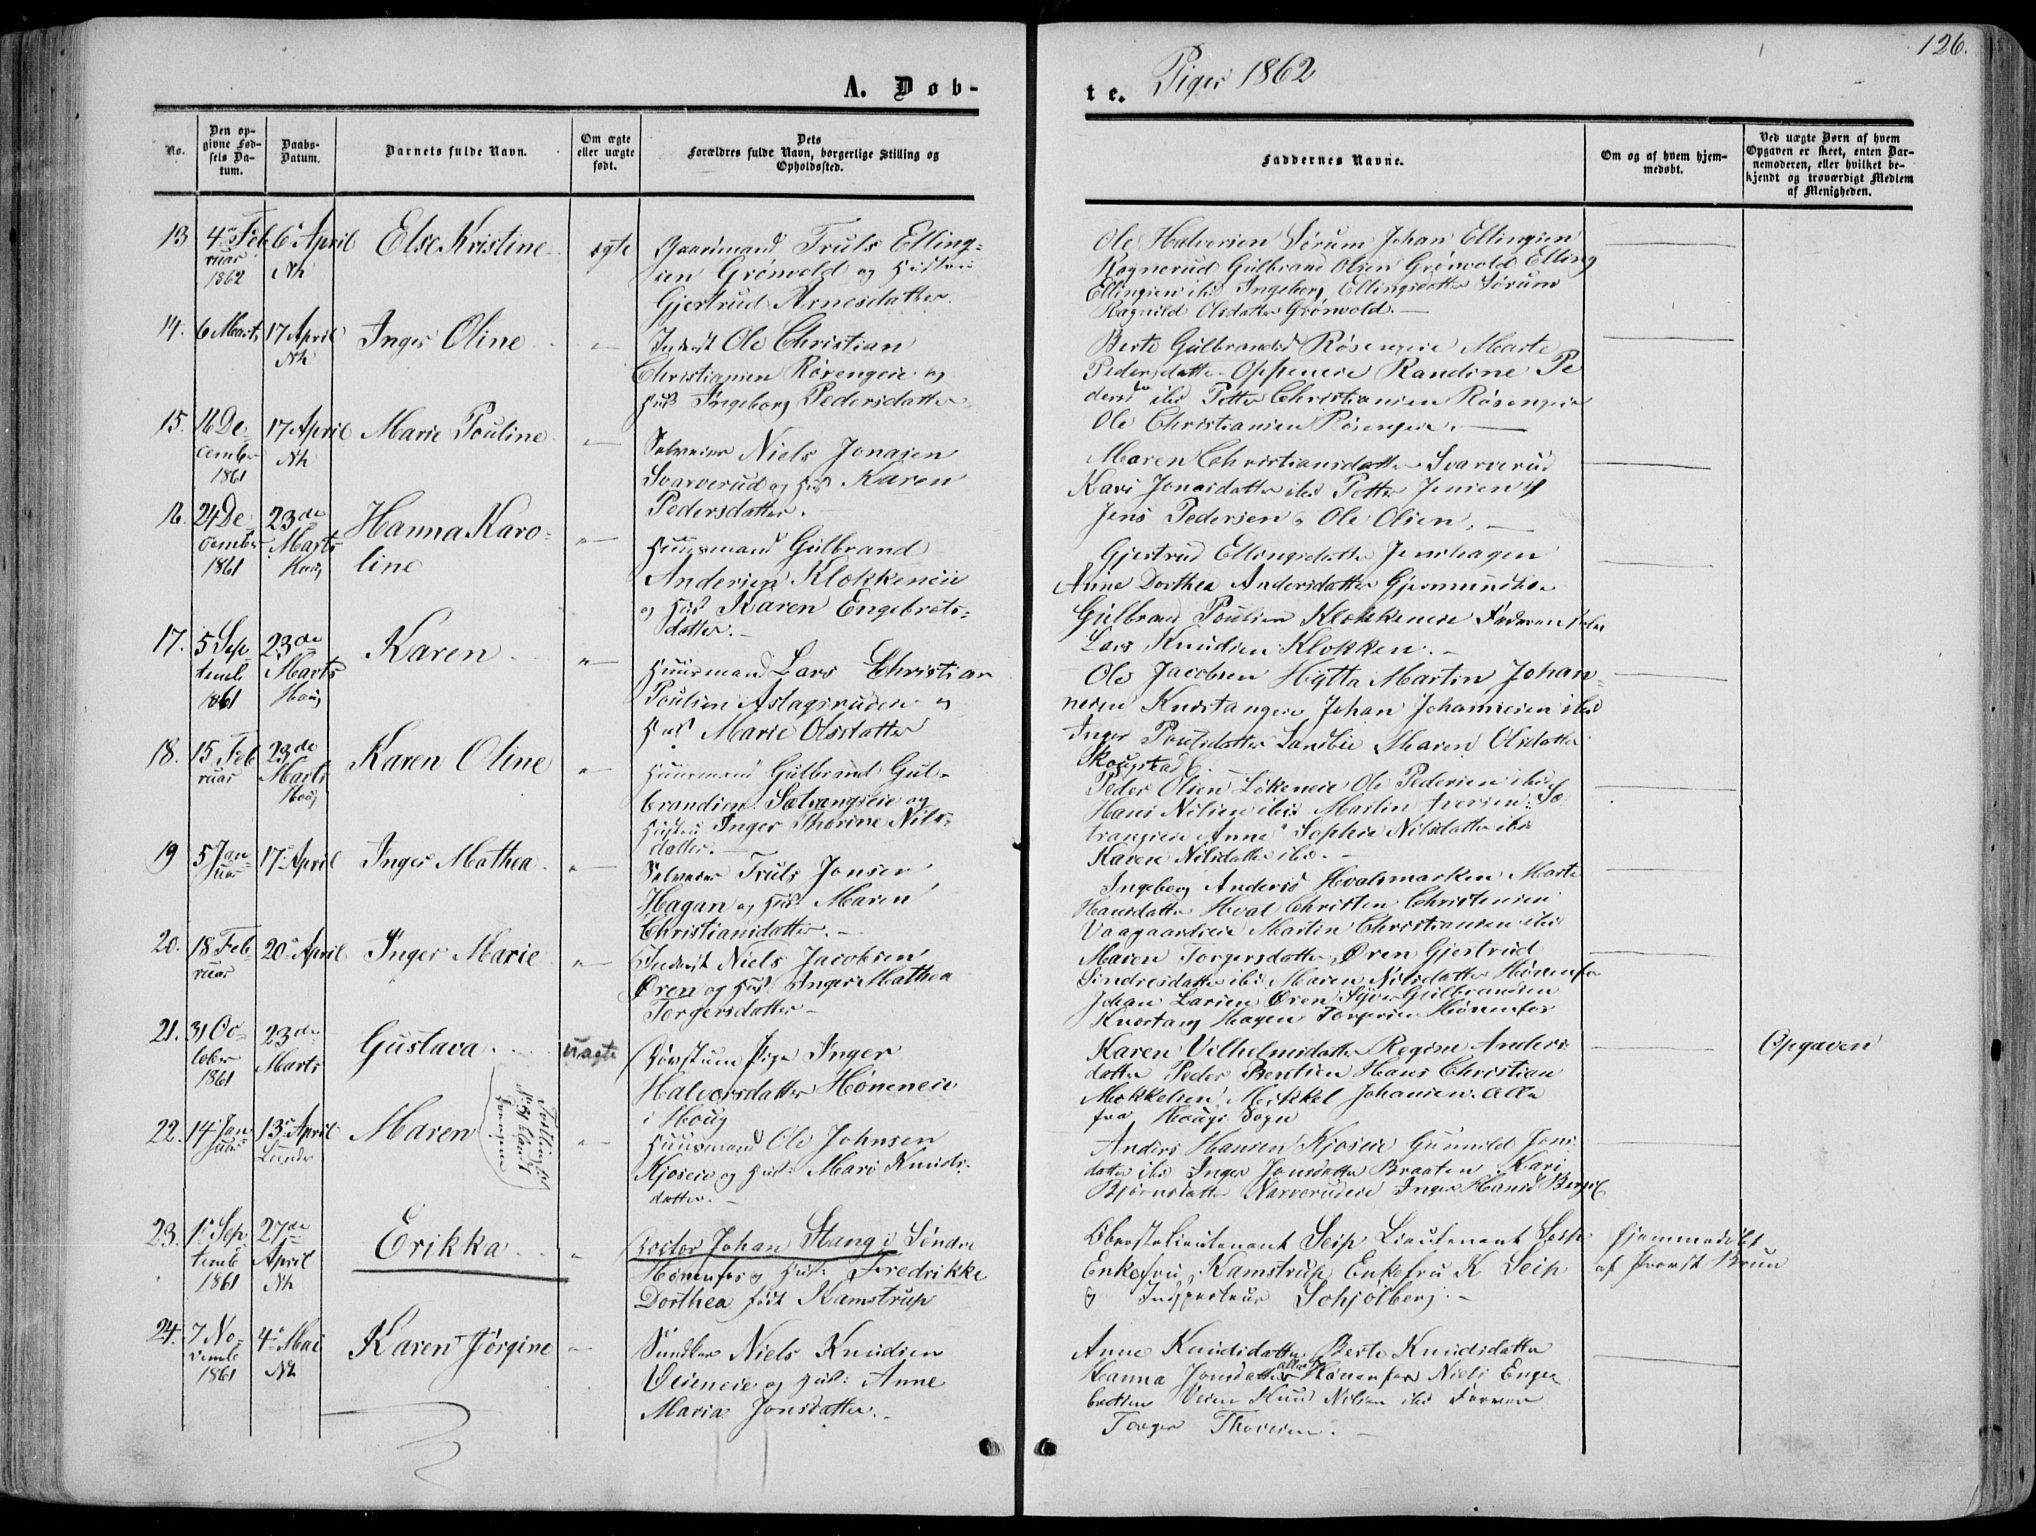 126.
A. Døb-
te. Piger 1862
No.
Den op-
givne Fød-
sels Da-
tum.
Daabs-
Datum.
Barnets fulde Navn.
Om ægte
eller uægte
født.
Dets
Forældres fulde Navn, borgerlige Stilling og
Opholdssted.
Faddernes Navne.
Om og af hvem hjem-
medøbt.
Ved uægte Børn af hvem
Opgaven er skeet, enten Bar-
nemoderen, eller hvilket be-
kjendt og troværdigt Medlem
af Menigheden.
13 4de Feb 6 April Else Kristine ægte Gaardmand Truls Elling-
ruar Nh sen Grønvold og Hustru
1862 Gjertrud Arnesdatter.
Ole Halvorsen Sørum Johan Ellingsen
Rognerud Gulbrand Olsen Grønvold Elling
Ellingsen ibid Ingeborg Ellingsdatter Sørum
Ragnild Olsdatter Grønvold.
14. 6 Marts 17 April Inger Oline " Inderst Ole Christian
Nh Christiansen Røsengeie og
Hust Ingeborg Pedersdatter
Berte Gulbrandsd Røsengeie Marte
Pedersdatter Oppeneie Randine Pe
dersd ibid Petter Christiansen Røsengeie
Ole Christiansen Røsengeie.
15. 16 De- 17 April Marie Pouline " Selveier Niels Jonasen
cember Nh Svarverud og Hust Karen
1861 Pedersdatter.
Maren Christiansdatter Svarverud
Kari Jonasdatter ibid Petter Jensen
Jens Pedersen Ole Olsen.
16. 24 De- 23de Hanna Karo- " Huusmand Gulbrand
cember Marts line Andersen Klokkeneie
1861 Houg og Hust Karen Engebrets-
datter.
Gjertrud Ellingsdatter Jenshagen
Anne Dorthea Andersdatter
Gulbrand Poulsen Klokkeneie Faderen selv
Lars Knudsen Klokken.
17. 5 Sep 23de Karen " Huusmand Lars Christian
temb Marts Poulsen Aslagsruden og
1861 Houg Hust Marie Olsdatter
Ole Jacobsen Hytta Martin Johan-
nesen Knestangeie Johan Johannesen ibid
Inger Poulsdatter Maren Olsdatter
Skougstad.
18. 15 Feb 23de Karen Oline " Huusmand Gulbrand Gul-
ruar Marts brandsen Sætrangseie og
Houg Hustru Inger Thorine Nils-
datter.
Peder Olsen Løkeneie Ole Pedersen ibid
Hans Nilsen ibid Martin Iversen Sæ
trangseie Anne Sophie Nilsdatter ibid
Karen Nilsdatter ibid.
19 5 Jan- 17 April Inger Mathea " Selveier Truls Jonsen
uar Hagan og Hust Maren
Christiansdatter.
Ingeborg Andersd Hvalsmarken Marte
Hansdatter Hval Christen Christensen
Vaagaardseie Martin Christiansen ibid
20. 18 Feb- 20 April Inger Marie " Inderst Niels Jacobsen
ruar Øren og Hust Inger Mathea
Torgersdatter
Maren Torgersdatter Øren Gjertrud
Sindresdatter ibid Maren Nilsdatter Hønenfos
Johan Larsen Øren Syver Gulbrandsen
Knestang Hagen Torgersen Hønenfos
21. 31 Oc- 23de Gustava uægte Pige Inger
tober Marts Halvorsdatter Høneneie
1861 i Houg
Karen Vilhelmsdatter Regine Anders
datter Peder Berntsen Hans Christian
Mekkelsen Mikkel Johansen. Alle
fra Hougs Sogn
Opgaven
22. 14 Jan 13 April Maren " Huusmand Ole Johnsen
uar Lunder Kjoseie og Hust: Mari Knuds-
datter.
Tvillingsøster
se blandt
Drengene
Anders Hansen Kjoseie Gunnild Jons
datter ibid Inger Jonsdatter Braaten Kari
Bjørnsdatter Narverudeie Inger Hansd
23. 1 Sep 27de Erikka " Doctor Johan Stang i Søndre
temb April Hønenfos og Hust: Fredrikke
1861 Nh Dorthea født Kamstrup
Oberstlieutenant Seip Lieutenant Seip
Enkefru Kamstrup Enkefru K Seip
og Inspecteur Schjölberg.
hjemmedøbt
af Provst Bruun
24. 7 No- 4 Mai Karen Jørgine " Snedker Niels Knudsen
vemb Nh Veieneie og Hust: Anne
1861 Maria Jonsdatter.
Anne Knudsdatter Berte Knudsdatter
Hanna Jonsdatter alle af Hønenfos Niels Enge
bretsen Veien Knud Nilsen ibid
Torger Thoresen.